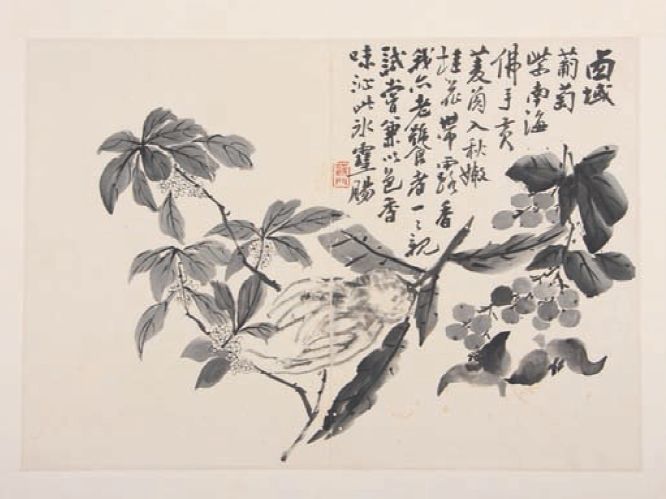 西域
葡萄
紫南海
佛手黄
菱入秋嫩
桂花帶露香
我亦老者一一親
試嘗兼以色香
味沁此冰腸